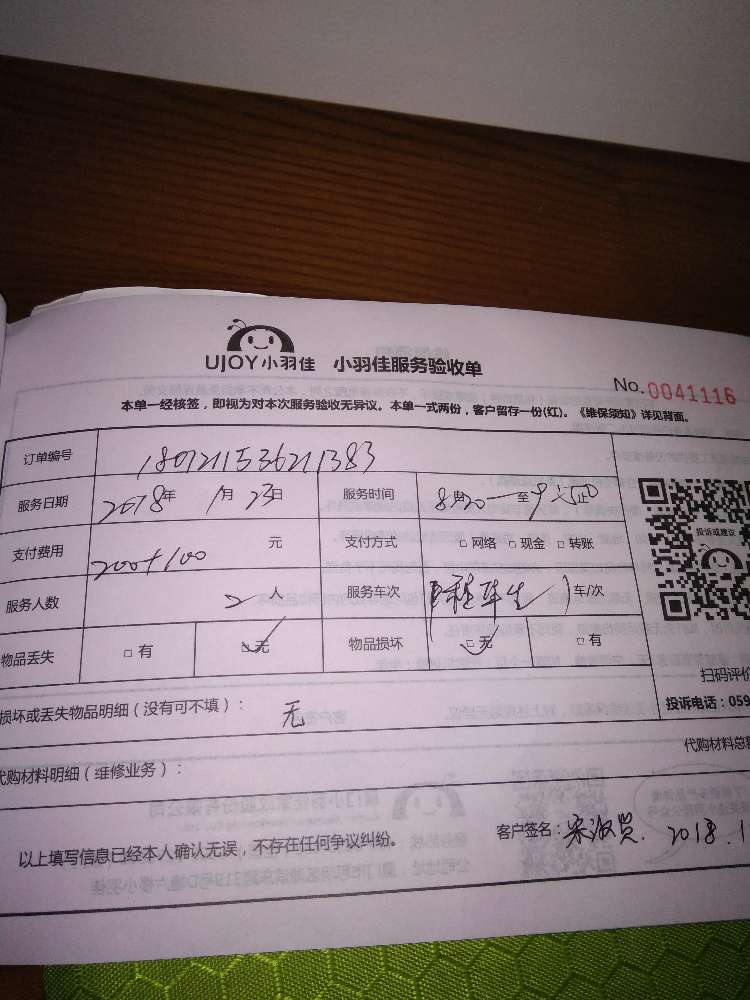 UJOY小羽佳 小羽佳服务验收单
No.0041116
本单一经核签，即视为对本次服务验收无异议。本单一式两份，客户留存一份(红)。《维保须知》详见背面。
订单编号 1801211536211383
服务日期 2018年 1月23日 服务时间 8 20 至 9 50止
投诉或建议
支付费用 200+100 元 支付方式 □ 网络 □ 现金 □ 转账
服务人数 2人 服务车次 车/次
物品丢失 □ 有 □无 物品损坏 □ 无 □ 有
扫码评价
损坏或丢失物品明细（没有可不填）： 无
投诉电话：059
代购材料总额
代购材料明细（维修业务）：
以上填写信息已经本人确认无误，不存在任何争议纠纷。
客户签名：宋淑贤. 2018.1